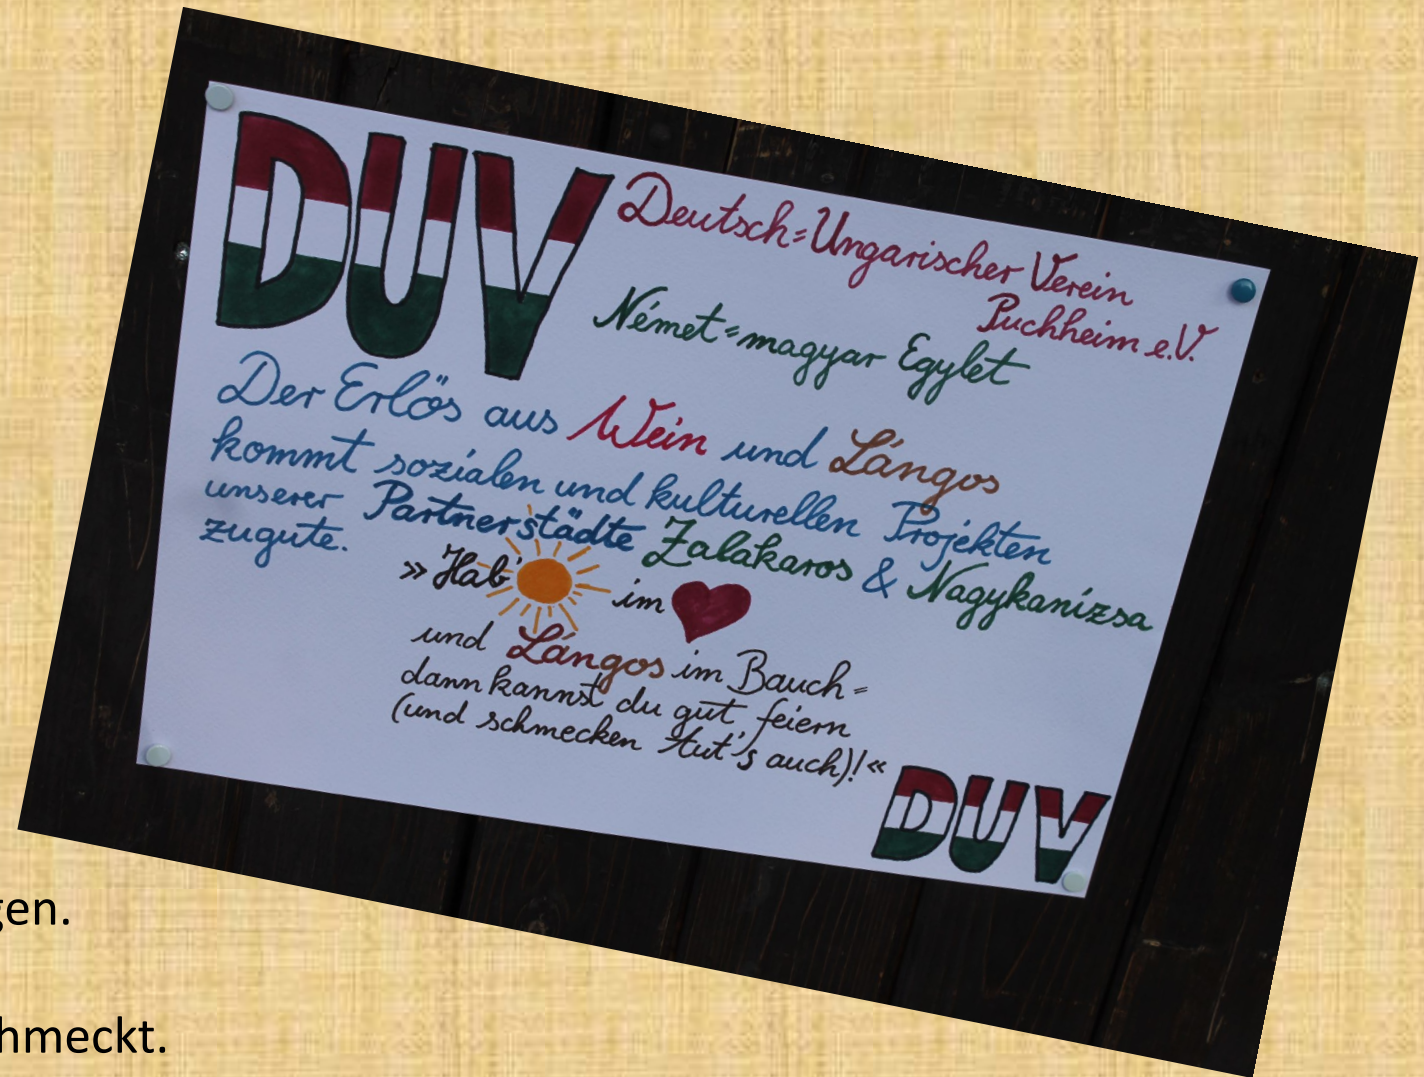 DUV
Deutsch=Ungarischer Verein
Puchheim e.V.
Német=magyar Egylet
Der Erlös aus Wein und Lángos
kommt sozialen und kulturellen Projekten
unserer Partnerstädte Zalakaros & Nagykanizsa
zugute.
»Hab' im
und Lángos im Bauch=
dann kannst du gut feiern
(und schmecken tut's auch)!«
DUV
gen.
hmeckt.